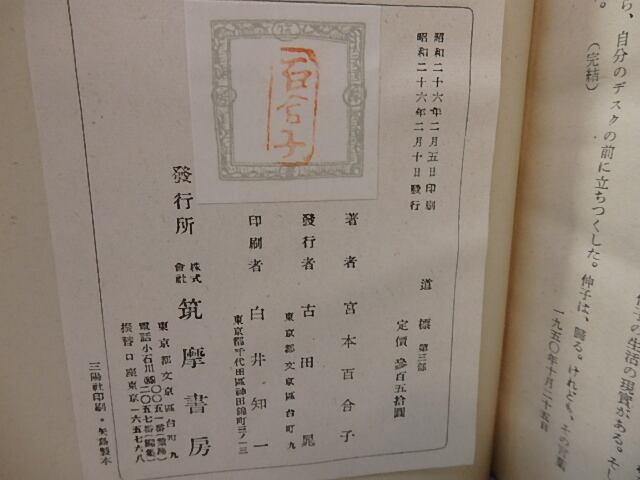 ら、自分のデスクの前に立ちつくした。伸子は、歸る。けれども、その言葉
（完結）
一九五〇年十月二十五日
昭和二十六年二月五日印刷
昭和二十六年二月十日發行
道標 第三部
定價 參百五拾圓
著者 宮本百合子
發行者 古田晁
東京都文京區台町九
印刷者 白井知一
東京都千代田區神田錦町三ノ一三
發行所 株式會社 筑摩書房
東京都文京區台町九
振替口座東京一六五七六八
三陽社印刷・矢島製本
百合子